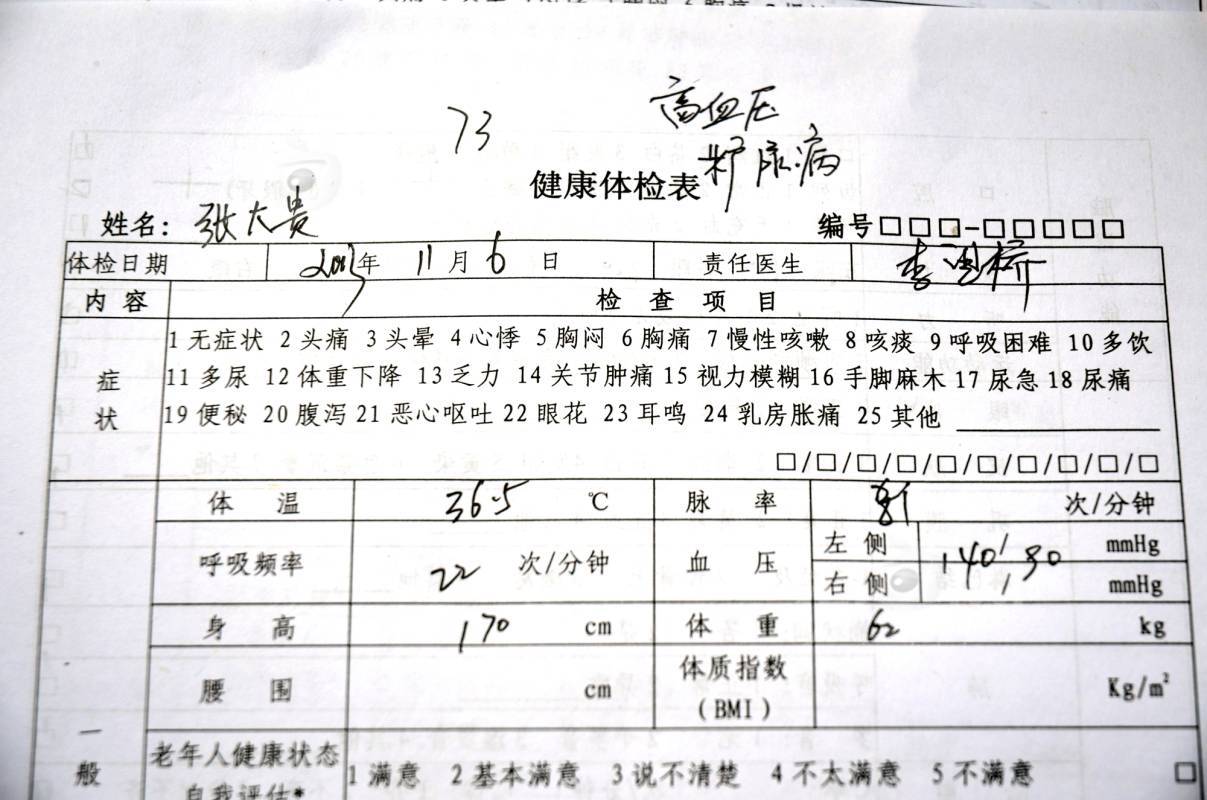 73
高血压
糖尿病
健康体检表
姓名: 张大贵
编号□□□-□□□□□
体检日期 2013年 11月 6日 责任医生
内容 检查项目
症状
1 无症状 2 头痛 3 头晕 4 心悸 5 胸闷 6 胸痛 7 慢性咳嗽 8 咳痰 9 呼吸困难 10 多饮
11 多尿 12 体重下降 13 乏力 14 关节肿痛 15 视力模糊 16 手脚麻木 17 尿急 18 尿痛
19 便秘 20 腹泻 21 恶心呕吐 22 眼花 23 耳鸣 24 乳房胀痛 25 其他
□/□/□/□/□/□/□/□/□/□
体温 36.5 ℃ 脉率 次/分钟
呼吸频率 22 次/分钟 血压 左侧 140/90 mmHg
右侧 mmHg
身高 170 cm 体重 62 kg
腰围 cm 体质指数
(BMI) Kg/m²
一般
老年人健康状态
自我评估*
1 满意 2 基本满意 3 说不清楚 4 不太满意 5 不满意 □